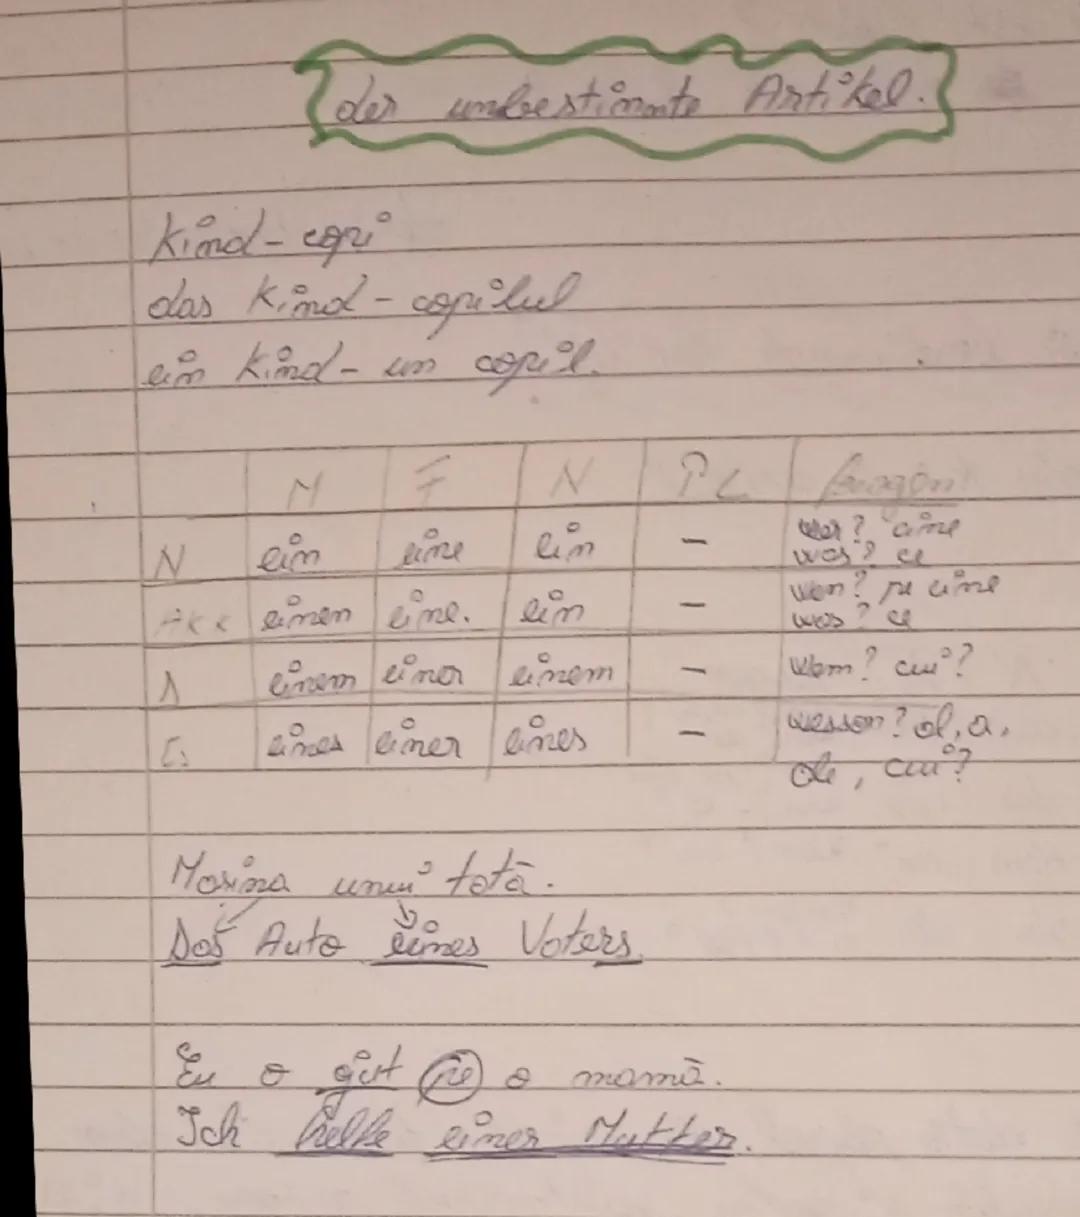 der unbestimmte Artikel.
Kind - copi
das Kind - copilul
ein Kind - un copil.
M F N PL Fragen
N ein eine ein - wer? cine
was? ce
Akk einen eine. ein - wen? pe cine
was? ce
D einem einer einem - wem? cui?
G eines einer eines - wessen? al, a,
ale, cui?
Mașina unui tată.
Das Auto eines Vaters
Eu o ajut pe o mamă.
Ich helfe einer Mutter.